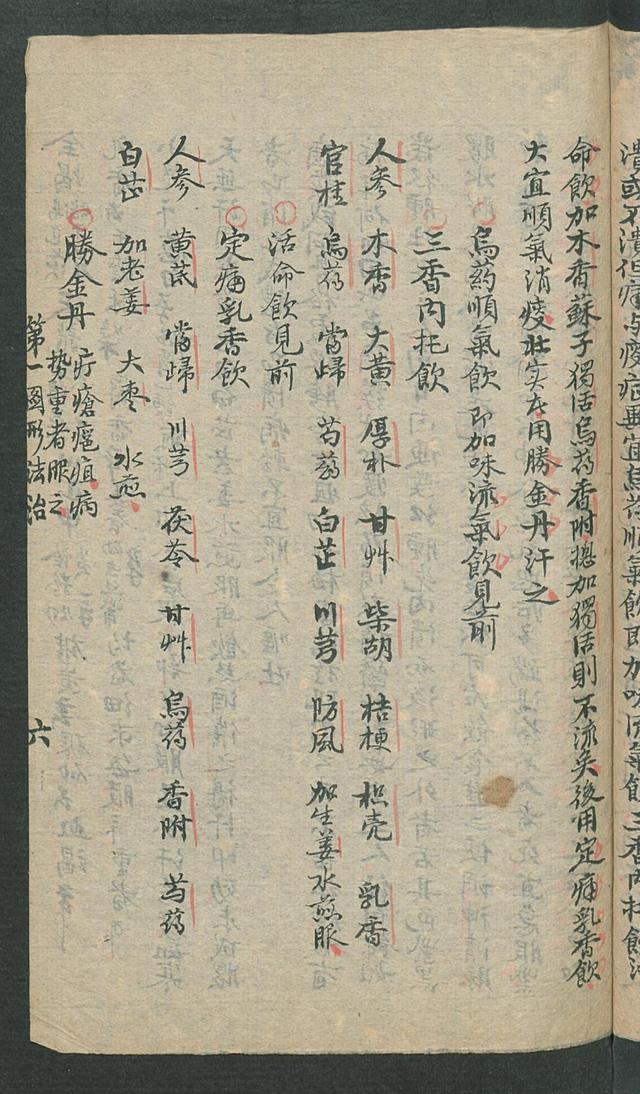 潰或不潰但痛与疫症無宜烏药順氣飲即加味流氣飲三香内托飲活
命飲加木香蘇子獨活烏药香附摠加獨活則不流矣後用定痛乳香飲
大宜順氣消疫壯实去用勝金丹汗之
烏药順氣飲 即加味流氣飲見前
三香内托飲
人参 木香 大黄 厚朴 甘艸 柴胡 桔梗 枳壳 乳香
官桂 烏药 當歸 芍药 白芷 川芎 防風 加生姜水煎服
活命飲見前
定痛乳香飲
人参 黄芪 當歸 川芎 茯苓 甘艸 烏药 香附 芍药
白芷 加老姜 大枣 水煎
勝金丹 疔瘡瘟疽病
势重者服之
第一圖形法治 六